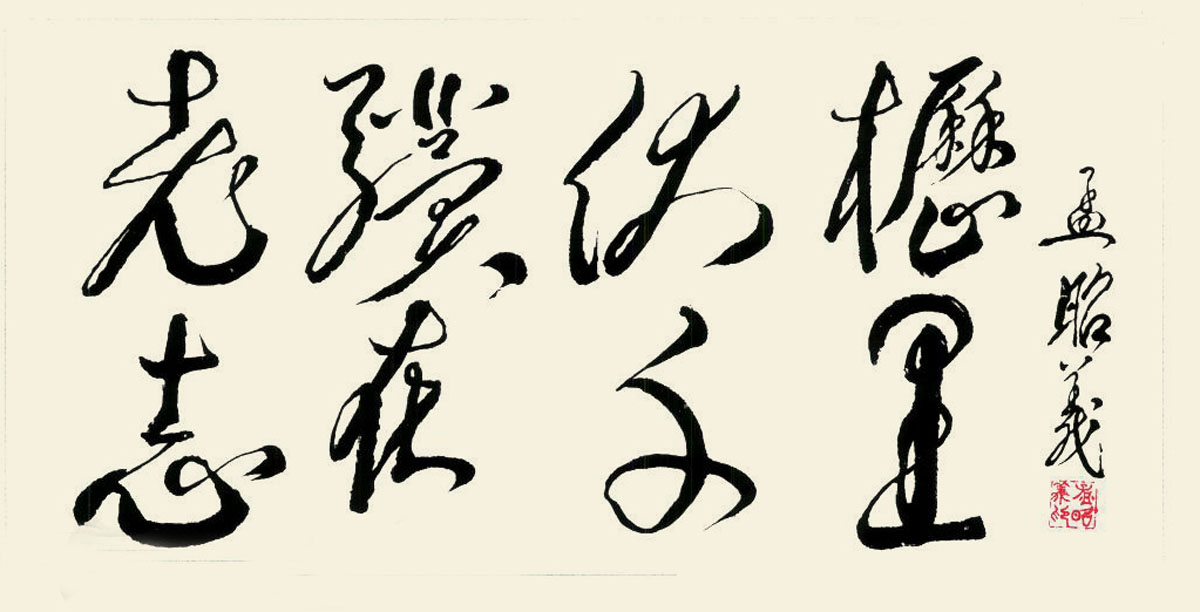 老驥伏櫪
志在千里
孟昭義
孟昭義印